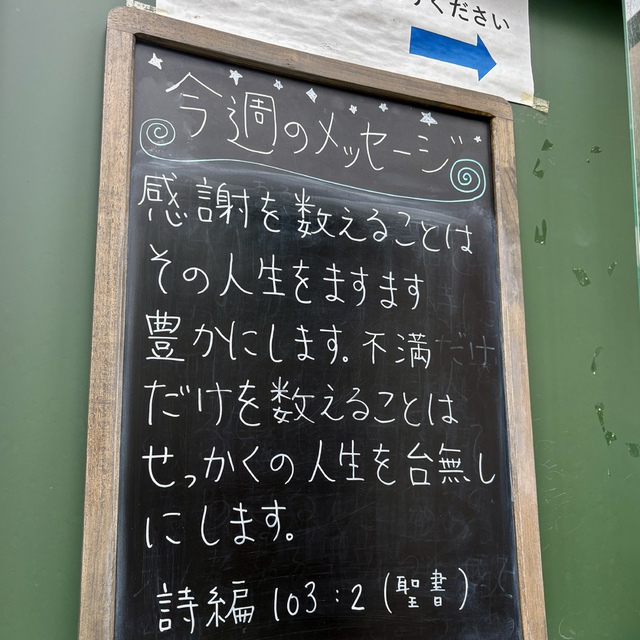 ください
今週のメッセージ
感謝を数えることは
その人生をますます
豊かにします。不満
だけを数えることは
せっかくの人生を台無し
にします。
詩編 103:2 (聖書)